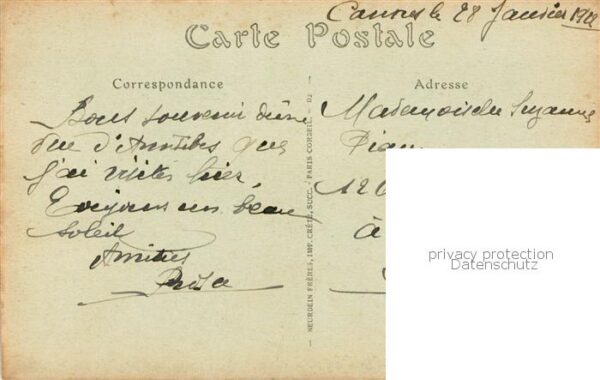 Cannes le 28 Janvier
Carte Postale
Correspondance
Bons souvenir d'une
vue d'Antibes que
j'ai visitée hier,
un beau
soleil
Amitiés
Adresse
Mademoiselle Suzanne
120
à
NEURDEIN FRÈRES, IMP. CRÉTÉ, SUCC. - PARIS-CORBEIL.
privacy protection
Datenschutz